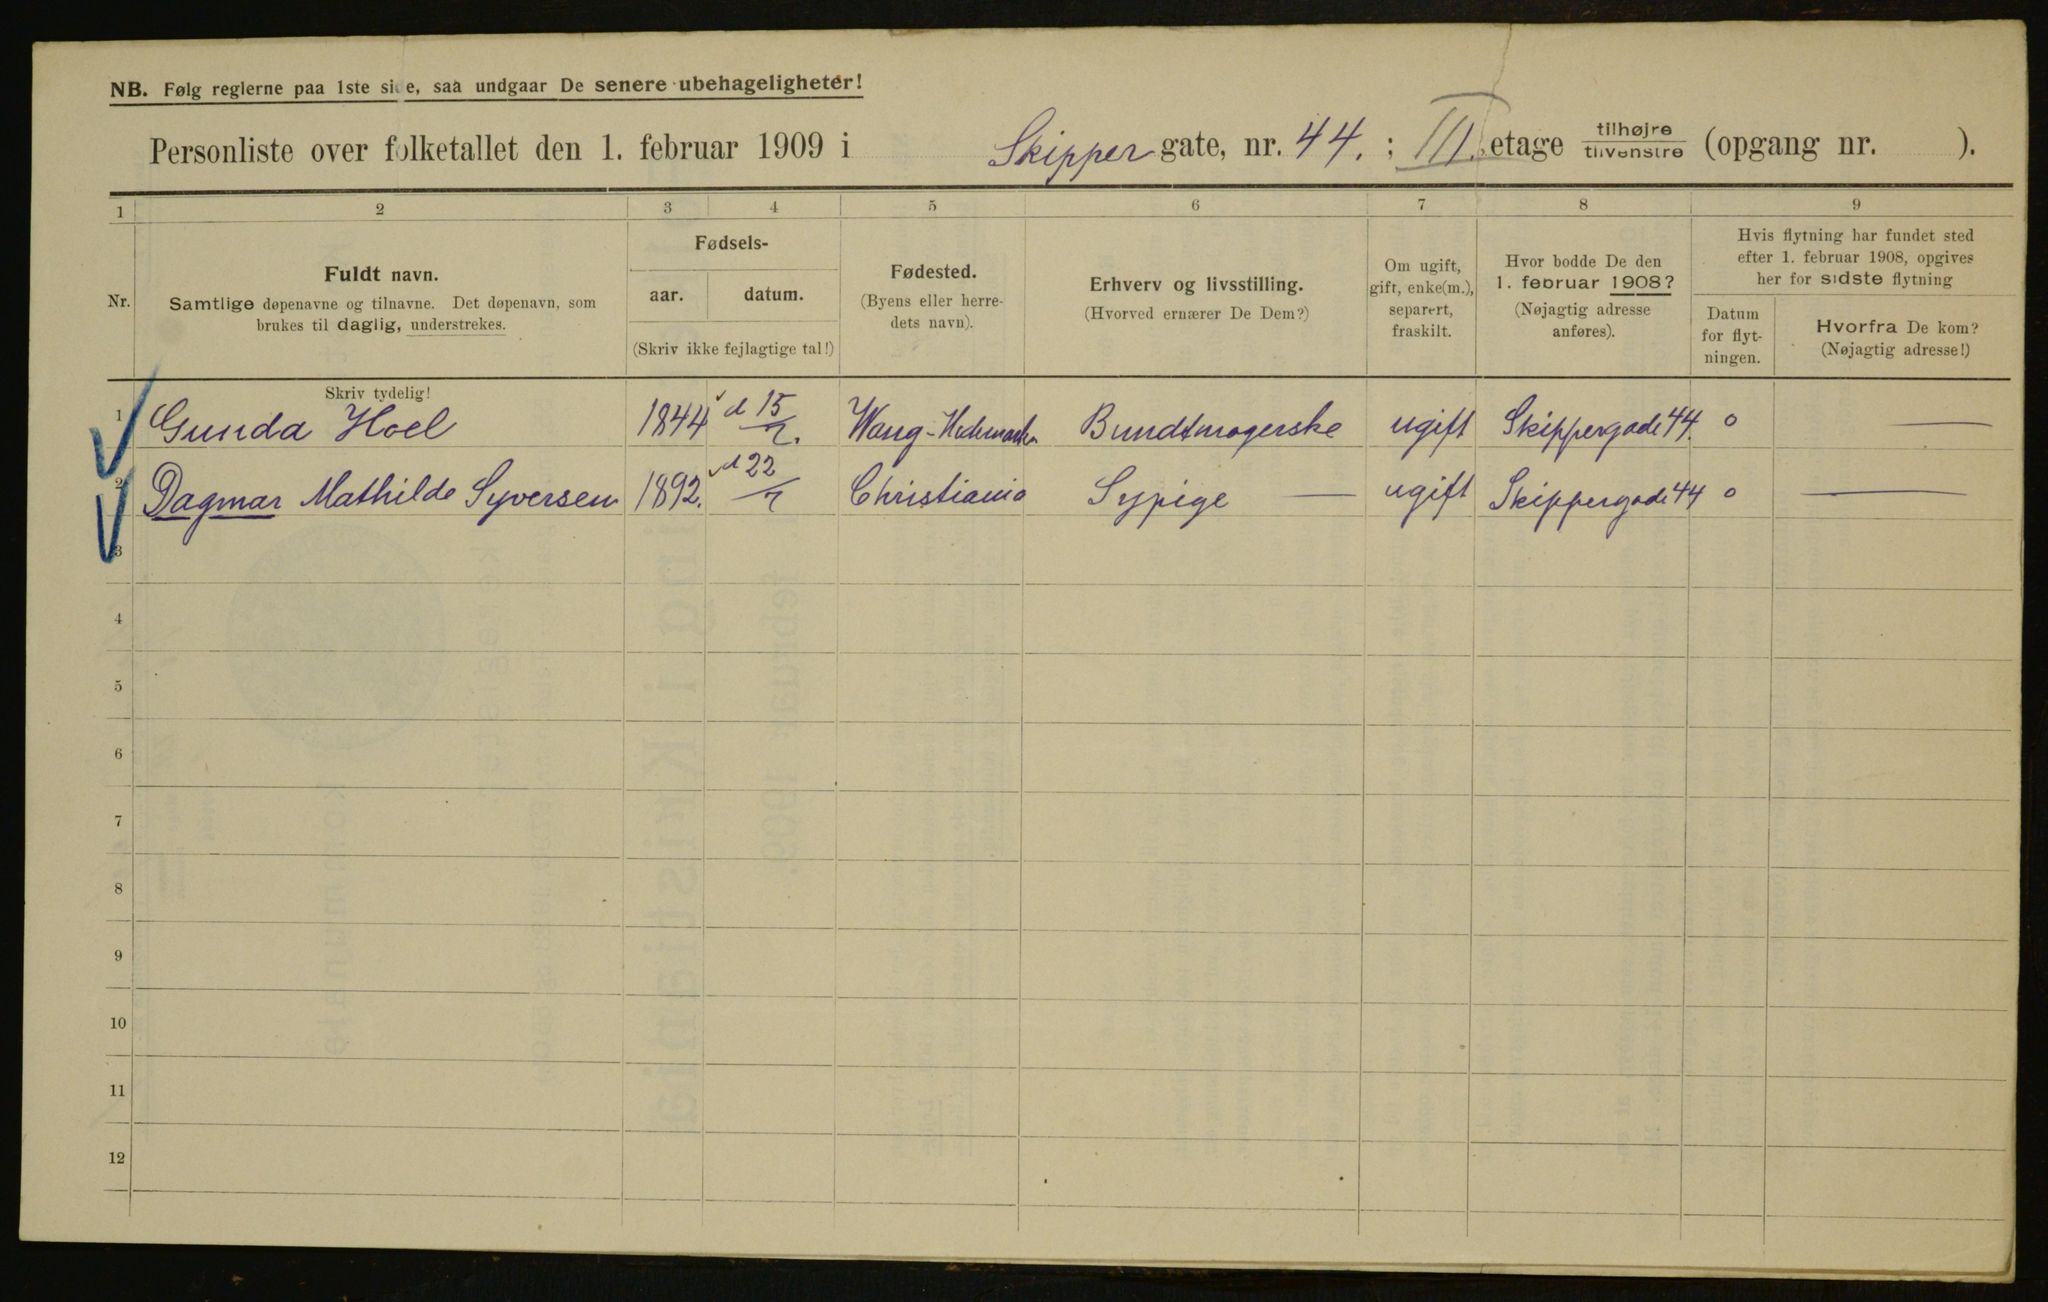 NB. Følg reglerne paa 1ste side, saa undgaar De senere ubehageligheter!
Personliste over folketallet den 1. februar 1909 i Skipper gate, nr. 44. ; III. etage tilhøjre / tilvenstre (opgang nr. ).
1 2 3 4 5 6 7 8 9
Nr.
Fuldt navn.
Samtlige døpenavne og tilnavne. Det døpenavn, som
brukes til daglig, understrekes.
Fødsels-
aar. datum.
(Skriv ikke fejlagtige tal!)
Fødested.
(Byens eller herre-
dets navn).
Erhverv og livsstilling.
(Hvorved ernærer De Dem?)
Om ugift,
gift, enke(m.),
separert,
fraskilt.
Hvor bodde De den
1. februar 1908?
(Nøjagtig adresse
anføres).
Hvis flytning har fundet sted
efter 1. februar 1908, opgives
her for sidste flytning
Datum
for flyt-
ningen.
Hvorfra De kom?
(Nøjagtig adresse!)
Skriv tydelig!
1 Gunda Hoel 1844 d 15/7. Wang-Hedemarken Bundtmagerske ugift Skippergade 44. o —
2 Dagmar Mathilde Syversen 1892. d 22/7 Christiania Sypige — ugift Skippergade 44 o —
3
4
5
6
7
8
9
10
11
12